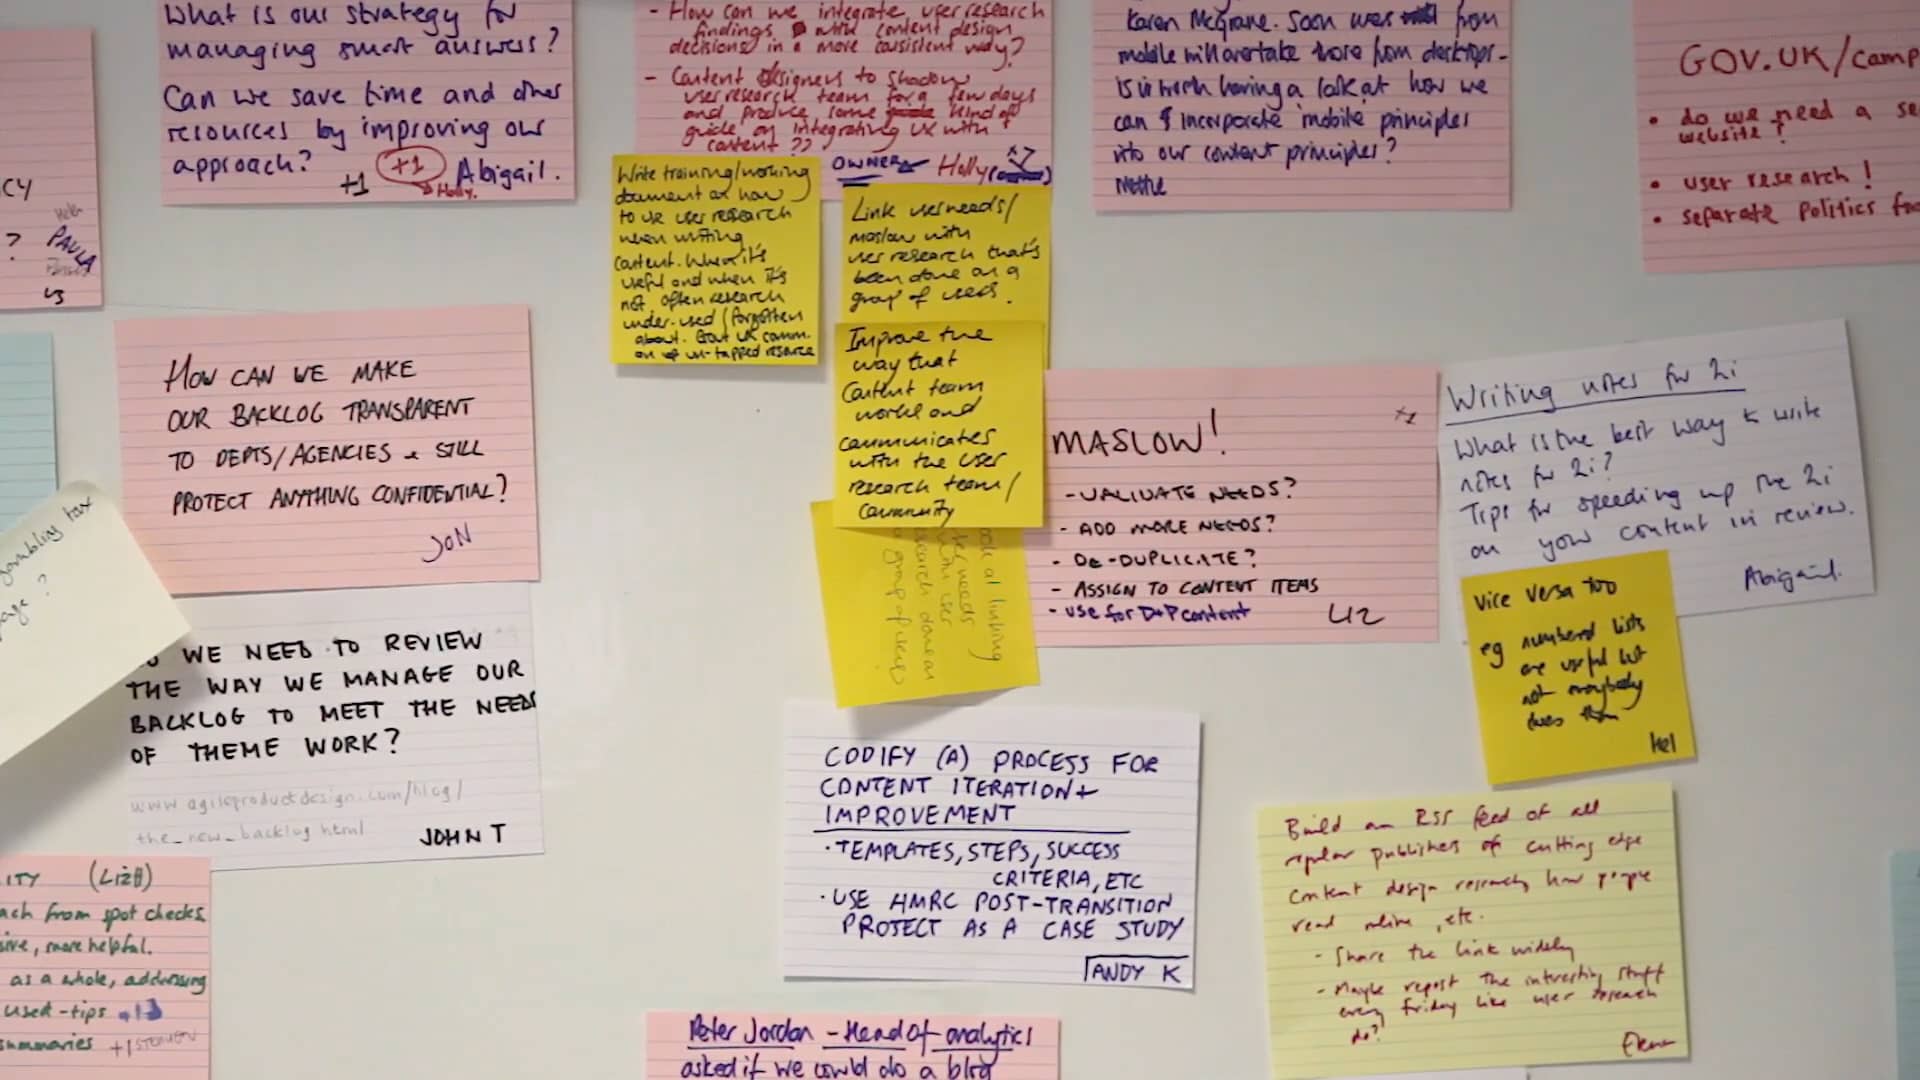 What is our strategy for
managing smart answers?
Can we save time and other
resources by improving our
approach?
+1 +1 Abigail.
Holly.
- How can we integrate user research
findings with content design
decisions in a more consistent way?
- Content designers to shadow
user research team for a few days
and produce some kind of
guide on integrating UX with
content ??
OWNER Holly
Karen McGrane. Soon users from
mobile will overtake those from desktops -
is it worth having a look at how we
can incorporate mobile principles
into our content principles?
Nettie
GOV.UK/camp
• do we need a se
website?
• user research!
• separate politics fro
CY
?
PAULA
Write training/working
document on how
to use user research
when writing
content. Where it's
useful and when it's
not often research
under-used/forgotten
about.
un-tapped resource
Link user needs/
maslow with
user research that's
been done on a
group of users.
Improve the
way that
Content team
works and
communicates
with the user
research team/
community
HOW CAN WE MAKE
OUR BACKLOG TRANSPARENT
TO DEPTS/AGENCIES & STILL
PROTECT ANYTHING CONFIDENTIAL?
JON
MASLOW!
+1
- VALIDATE NEEDS?
- ADD MORE NEEDS?
- DE-DUPLICATE?
- ASSIGN TO CONTENT ITEMS
- use for D+P content
LIZ
Writing notes for 2i
What is the best way to write
notes for 2i?
Tips for speeding up the 2i
on your content in review.
Abigail.
Vice versa too
eg numbered lists
are useful but
not everybody
likes them
Hel
gambling tax
page?
WE NEED TO REVIEW
THE WAY WE MANAGE OUR
BACKLOG TO MEET THE NEEDS
OF THEME WORK?
www.agileproductdesign.com/blog/
the_new_backlog.html
JOHN T
CODIFY (A) PROCESS FOR
CONTENT ITERATION +
IMPROVEMENT
• TEMPLATES, STEPS, SUCCESS
CRITERIA, ETC
• USE HMRC POST-TRANSITION
PROJECT AS A CASE STUDY
ANDY K
Build an RSS feed of all
regular publishers of cutting edge
content design research, how people
read online, etc.
- Share the link widely
- Maybe repost the interesting stuff
every Friday like user research
do?
ITY (LIZB)
ach from spot checks
sive, more helpful.
as a whole, addressing
used - tips
summaries +1
Peter Jordan - Head of analytics
asked if we could do a blog